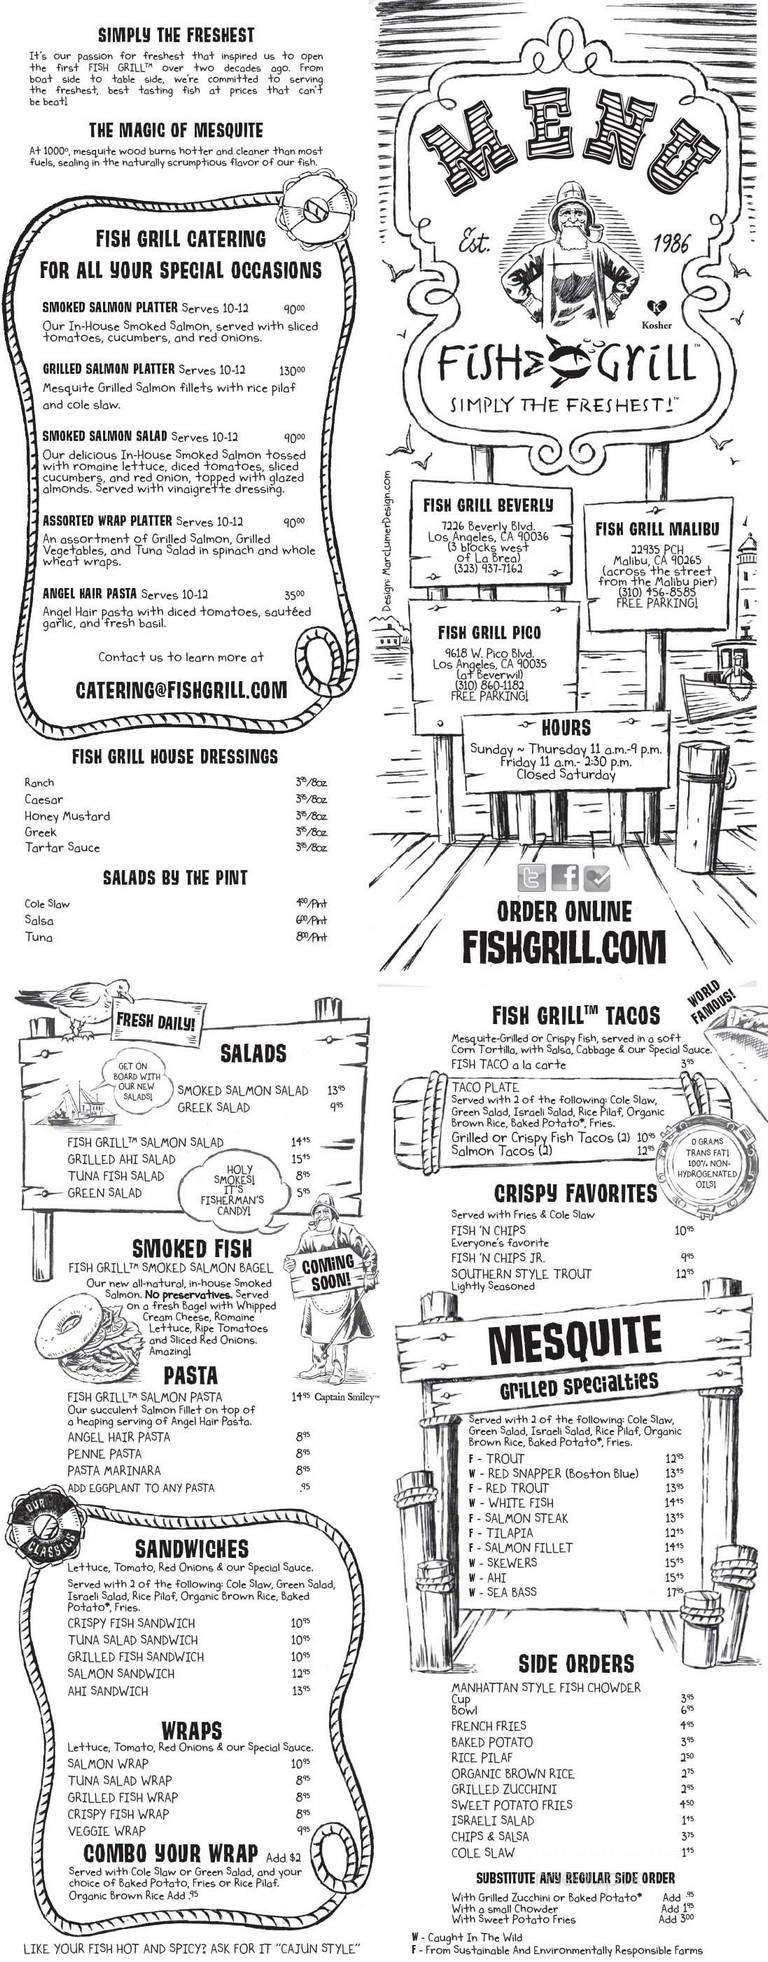 SIMPLY THE FRESHEST
It's our passion for freshest that inspired us to open
the first FISH GRILL™ over two decades ago. From
boat side to table side, we're committed to serving
the freshest, best tasting fish at prices that can't
be beat!
THE MAGIC OF MESQUITE
At 1000º, mesquite wood burns hotter and cleaner than most
fuels, sealing in the naturally scrumptious flavor of our fish.
FISH GRILL CATERING
FOR ALL YOUR SPECIAL OCCASIONS
SMOKED SALMON PLATTER Serves 10-12 90⁰⁰
Our In-House Smoked Salmon, served with sliced
tomatoes, cucumbers, and red onions.
GRILLED SALMON PLATTER Serves 10-12 130⁰⁰
Mesquite Grilled Salmon fillets with rice pilaf
and cole slaw.
SMOKED SALMON SALAD Serves 10-12 90⁰⁰
Our delicious In-House Smoked Salmon tossed
with romaine lettuce, diced tomatoes, sliced
cucumbers, and red onion, topped with glazed
almonds. Served with vinaigrette dressing.
ASSORTED WRAP PLATTER Serves 10-12 90⁰⁰
An assortment of Grilled Salmon, Grilled
Vegetables, and Tuna Salad in spinach and whole
wheat wraps.
ANGEL HAIR PASTA Serves 10-12 35⁰⁰
Angel Hair pasta with diced tomatoes, sautéed
garlic, and fresh basil.
Contact us to learn more at
CATERING@FISHGRILL.COM
FISH GRILL HOUSE DRESSINGS
Ranch 3⁹⁵/8oz
Caesar 3⁹⁵/8oz
Honey Mustard 3⁹⁵/8oz
Greek 3⁹⁵/8oz
Tartar Sauce 3⁹⁵/8oz
SALADS BY THE PINT
Cole Slaw 4⁰⁰/Pnt
Salsa 6⁰⁰/Pnt
Tuna 8⁰⁰/Pnt
MENU
Est. 1986
K
Kosher
FISH GRILL™
SIMPLY THE FRESHEST!™
Design: MarcLumerDesign.com
FISH GRILL BEVERLY
7226 Beverly Blvd.
Los Angeles, CA 90036
(3 blocks west
of La Brea)
(323) 937-7162
FISH GRILL MALIBU
22935 PCH
Malibu, CA 90265
(across the street
from the Malibu pier)
(310) 456-8585
FREE PARKING!
FISH GRILL PICO
9618 W. Pico Blvd.
Los Angeles, CA 90035
(at Beverwil)
(310) 860-1182
FREE PARKING!
HOURS
Sunday ~ Thursday 11 a.m.-9 p.m.
Friday 11 a.m.- 2:30 p.m.
Closed Saturday
t f
ORDER ONLINE
FISHGRILL.COM
FRESH DAILY!
SALADS
GET ON
BOARD WITH
OUR NEW
SALADS!
SMOKED SALMON SALAD 13⁹⁵
GREEK SALAD 9⁹⁵
FISH GRILL™ SALMON SALAD 14⁴⁵
GRILLED AHI SALAD 15⁴⁵
TUNA FISH SALAD 8⁹⁵
GREEN SALAD 5⁹⁵
HOLY
SMOKES!
IT'S
FISHERMAN'S
CANDY!
SMOKED FISH
FISH GRILL™ SMOKED SALMON BAGEL
Our new all-natural, in-house Smoked
Salmon. No preservatives. Served
on a fresh Bagel with Whipped
Cream Cheese, Romaine
Lettuce, Ripe Tomatoes
and Sliced Red Onions.
Amazing!
COMING
SOON!
Captain Smiley™
PASTA
FISH GRILL™ SALMON PASTA 14⁹⁵
Our succulent Salmon Fillet on top of
a heaping serving of Angel Hair Pasta.
ANGEL HAIR PASTA 8⁹⁵
PENNE PASTA 8⁹⁵
PASTA MARINARA 8⁹⁵
ADD EGGPLANT TO ANY PASTA .95
OUR
CLASSICS
SANDWICHES
Lettuce, Tomato, Red Onions & our Special Sauce.
Served with 2 of the following: Cole Slaw, Green Salad,
Israeli Salad, Rice Pilaf, Organic Brown Rice, Baked
Potato*, Fries.
CRISPY FISH SANDWICH 10⁹⁵
TUNA SALAD SANDWICH 10⁹⁵
GRILLED FISH SANDWICH 10⁹⁵
SALMON SANDWICH 12⁹⁵
AHI SANDWICH 13⁹⁵
WRAPS
Lettuce, Tomato, Red Onions & our Special Sauce.
SALMON WRAP 10⁹⁵
TUNA SALAD WRAP 8⁹⁵
GRILLED FISH WRAP 8⁹⁵
CRISPY FISH WRAP 8⁹⁵
VEGGIE WRAP 9⁹⁵
COMBO YOUR WRAP Add $2
Served with Cole Slaw or Green Salad, and your
choice of Baked Potato, Fries or Rice Pilaf.
Organic Brown Rice Add .95
LIKE YOUR FISH HOT AND SPICY? ASK FOR IT "CAJUN STYLE"
FISH GRILL™ TACOS
WORLD
FAMOUS!
Mesquite-Grilled or Crispy Fish, served in a soft
Corn Tortilla, with Salsa, Cabbage & our Special Sauce.
FISH TACO a la carte 3⁹⁵
TACO PLATE
Served with 2 of the following: Cole Slaw,
Green Salad, Israeli Salad, Rice Pilaf, Organic
Brown Rice, Baked Potato*, Fries.
Grilled or Crispy Fish Tacos (2) 10⁹⁵
Salmon Tacos (2) 12⁹⁵
0 GRAMS
TRANS FAT!
100% NON-
HYDROGENATED
OILS!
CRISPY FAVORITES
Served with Fries & Cole Slaw
FISH 'N CHIPS 10⁹⁵
Everyone's favorite
FISH 'N CHIPS JR. 9⁹⁵
SOUTHERN STYLE TROUT 12⁹⁵
Lightly Seasoned
MESQUITE
Grilled Specialties
Served with 2 of the following: Cole Slaw,
Green Salad, Israeli Salad, Rice Pilaf, Organic
Brown Rice, Baked Potato*, Fries.
F - TROUT 12⁹⁵
W - RED SNAPPER (Boston Blue) 13⁴⁵
F - RED TROUT 13⁹⁵
W - WHITE FISH 14⁴⁵
F - SALMON STEAK 13⁴⁵
F - TILAPIA 12⁴⁵
F - SALMON FILLET 14⁴⁵
W - SKEWERS 15⁴⁵
W - AHI 15⁴⁵
W - SEA BASS 17⁹⁵
SIDE ORDERS
MANHATTAN STYLE FISH CHOWDER
Cup 3⁹⁵
Bowl 6⁹⁵
FRENCH FRIES 4⁹⁵
BAKED POTATO 3⁹⁵
RICE PILAF 2⁵⁰
ORGANIC BROWN RICE 2⁷⁵
GRILLED ZUCCHINI 2⁹⁵
SWEET POTATO FRIES 4⁵⁰
ISRAELI SALAD 1⁴⁵
CHIPS & SALSA 3⁷⁵
COLE SLAW 1⁴⁵
SUBSTITUTE ANY REGULAR SIDE ORDER
With Grilled Zucchini or Baked Potato* Add .95
With a small Chowder Add 1⁹⁵
With Sweet Potato Fries Add 3⁰⁰
W - Caught In The Wild
F - From Sustainable And Environmentally Responsible Farms